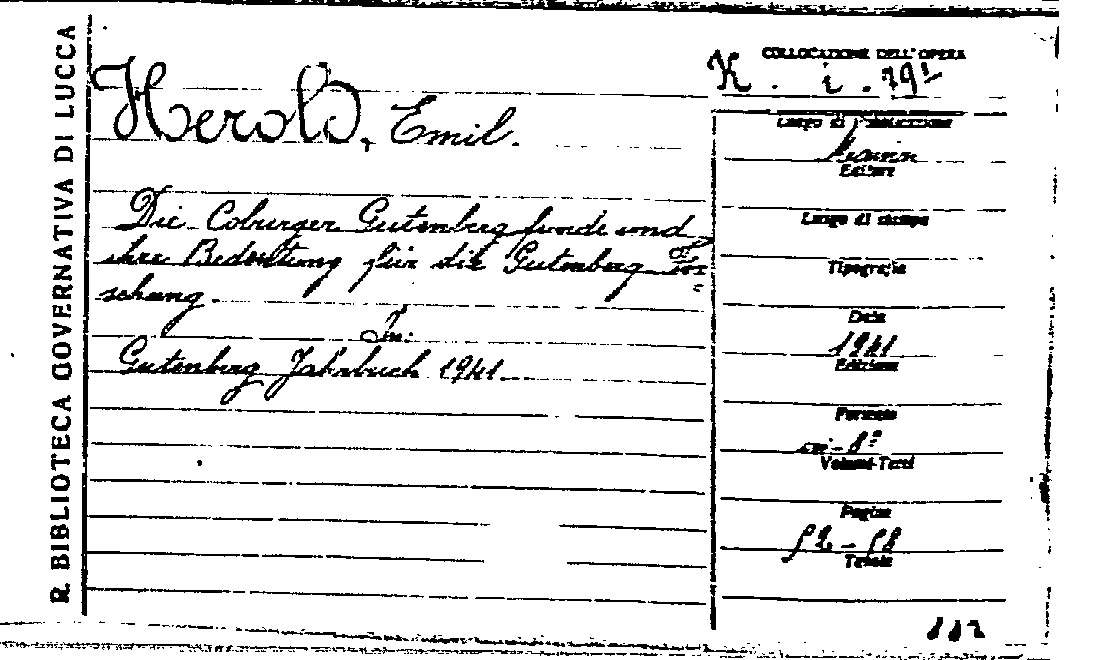 R. BIBLIOTECA GOVERNATIVA DI LUCCA
Herold, Emil.
Die Coburger Gutenberg funde und
ihre Bedeutung für die Gutenberg For
schung.
In:
Gutenberg Jahrbuch 1941.
COLLOCAZIONE DELL'OPERA
K. i.
Luogo di Pubblicazione
Editore
Luogo di stampa
Tipografia
Data
1941
Edizione
Formato
in-8º
Volumi-Tomi
Pagine
52-58
Tavole